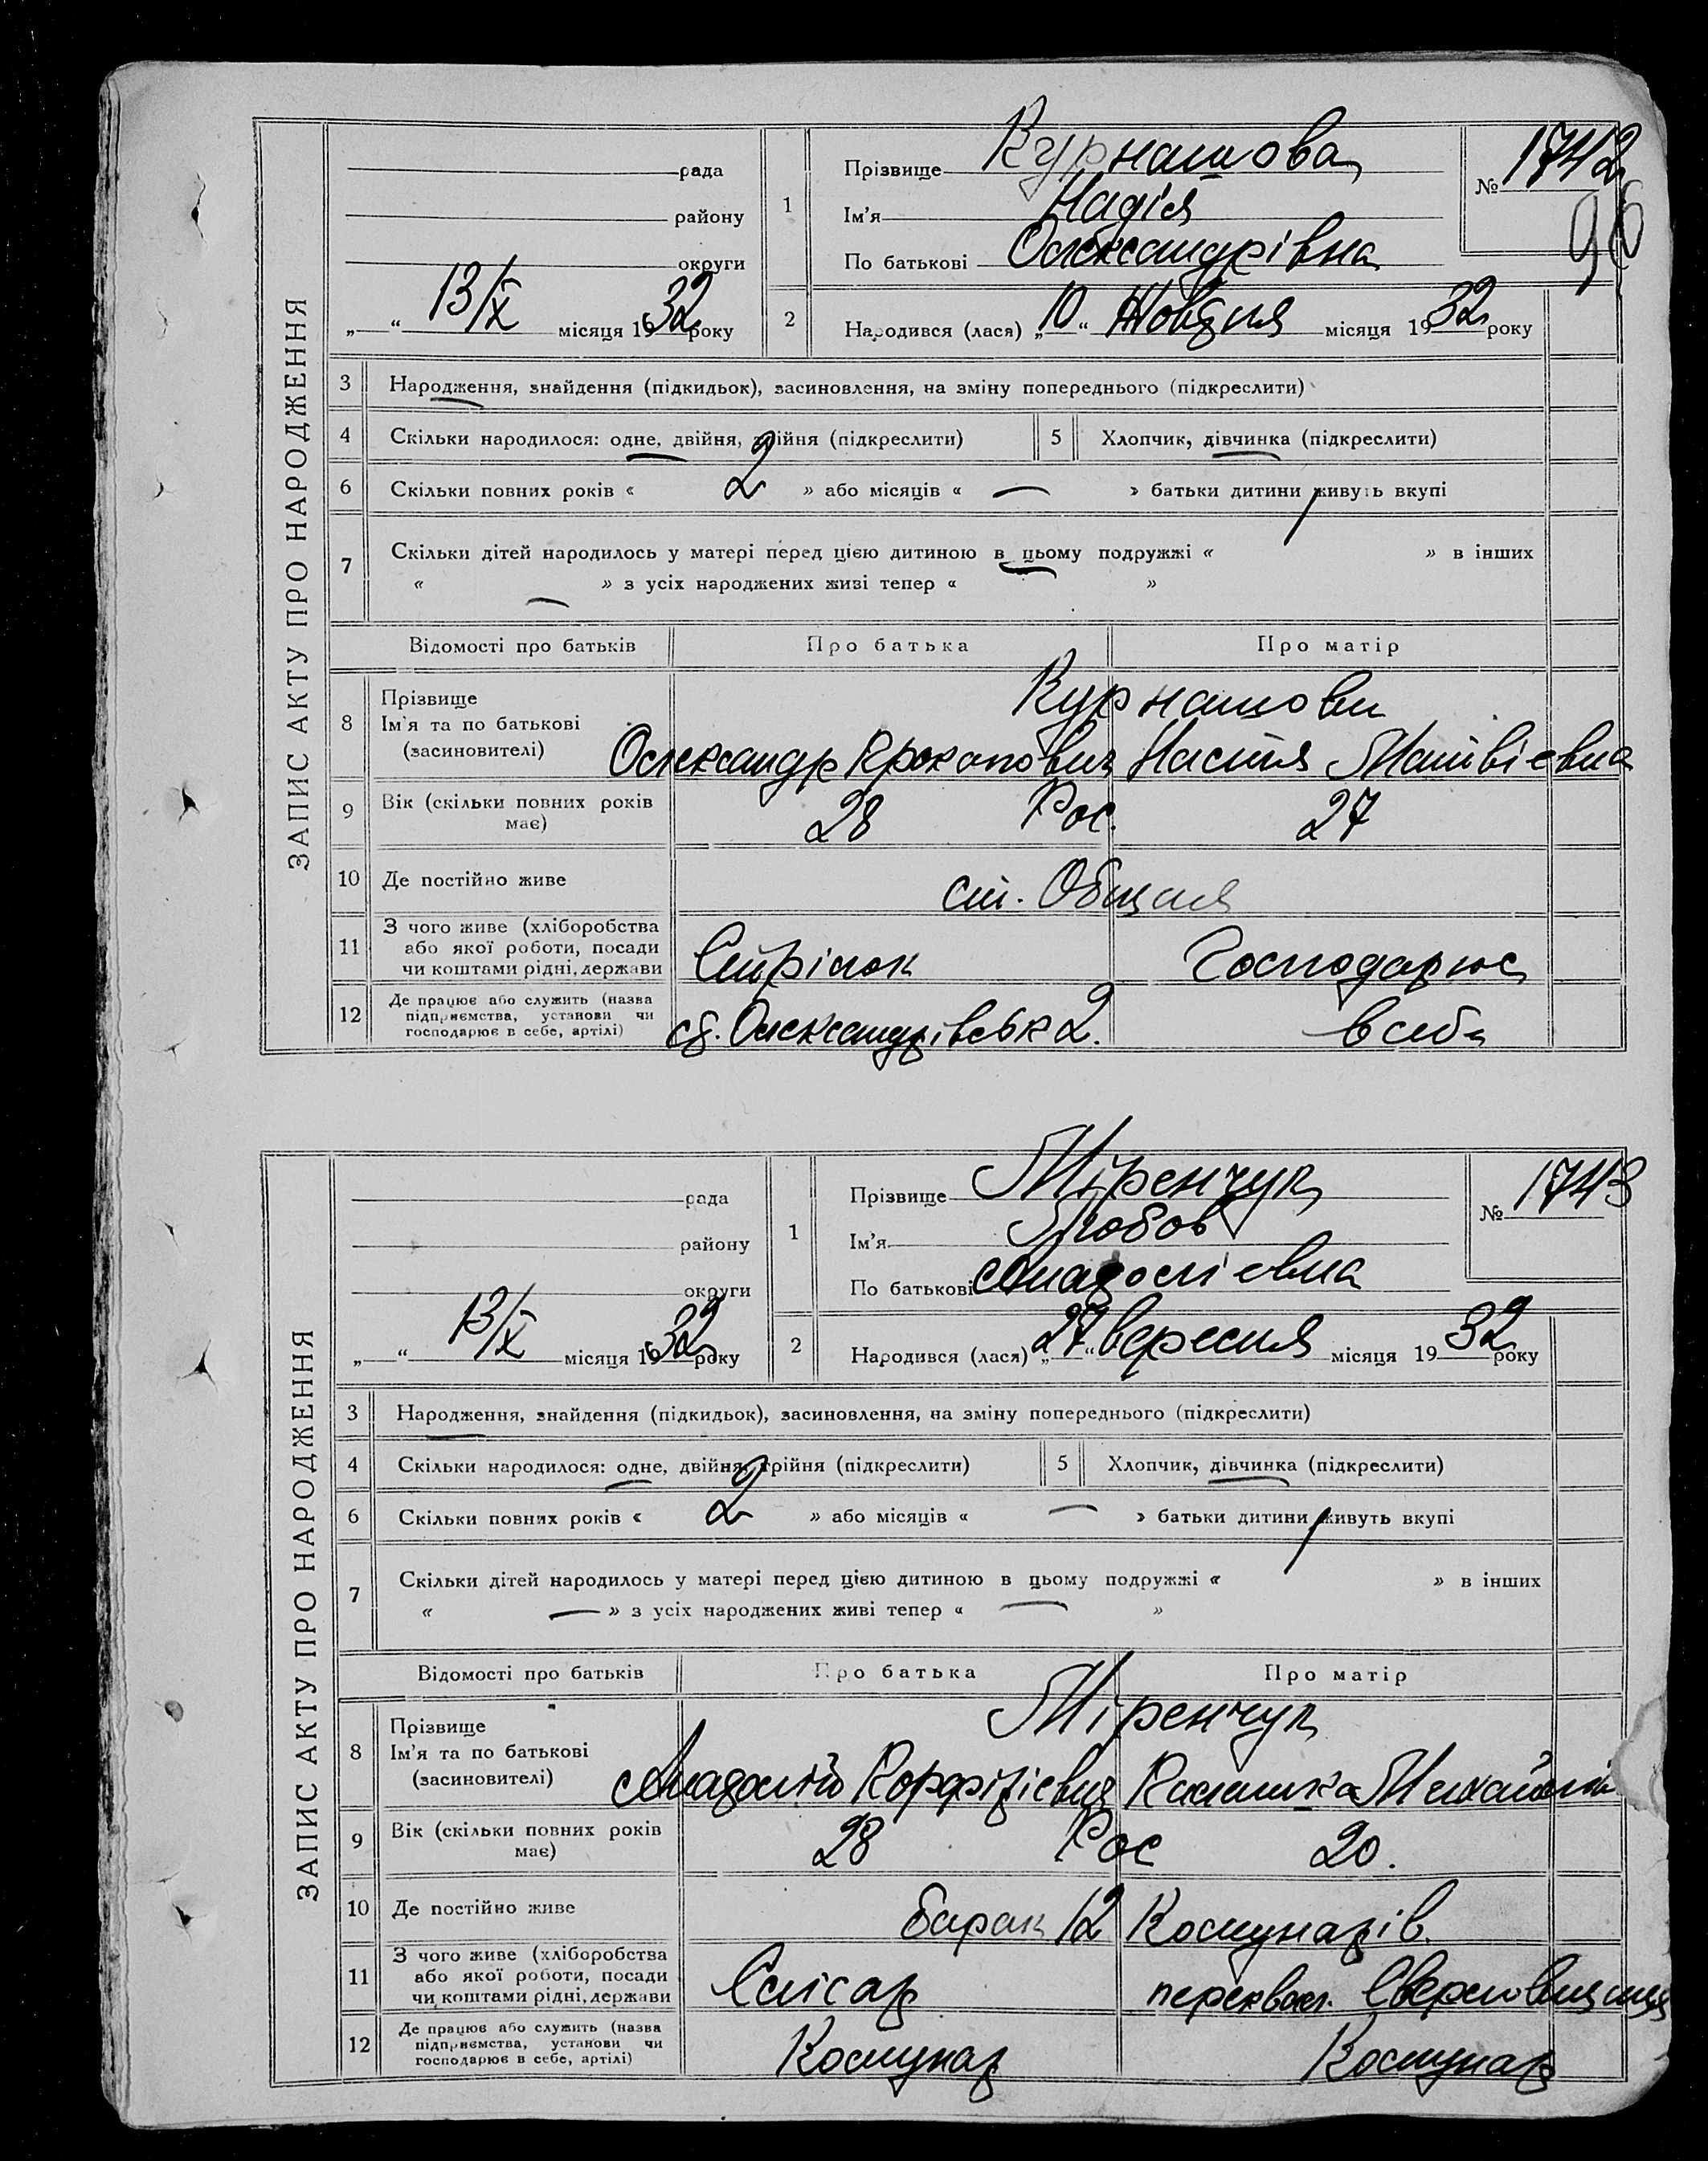 ЗАПИС АКТУ ПРО НАРОДЖЕННЯ
рада
району
округи
„ “ 13/X місяця 1932 року
1 Прізвище Курнашова
Ім'я Надія
По батькові Олександрівна
№ 1742
96
2 Народився (лася) „10“ Жовтня місяця 1932 року
3 Народження, знайдення (підкидьок), засиновлення, на зміну попереднього (підкреслити)
4 Скільки народилося: одне, двійня, трійня (підкреслити) 5 Хлопчик, дівчинка (підкреслити)
6 Скільки повних років « 2 » або місяців « — » батьки дитини живуть вкупі
7 Скільки дітей народилось у матері перед цією дитиною в цьому подружжі « » в інших
« — » з усіх народжених живі тепер « »
Відомості про батьків Про батька Про матір
8 Прізвище Курнашови
Ім'я та по батькові
(засиновителі) Олександр Прокопович Настя Матвієвна
9 Вік (скільки повних років має) 28 Рос. 27
10 Де постійно живе ст.
11 З чого живе (хліборобства
або якої роботи, посади
чи коштами рідні, держави Стрілок Господарює
12 Де працює або служить (назва
підприємства, установи чи
господарює в себе, артілі) Олександрівськ 2. в себе
ЗАПИС АКТУ ПРО НАРОДЖЕННЯ
рада
району
округи
„ “ 13/X місяця 1932 року
1 Прізвище Міренчук
Ім'я Любов
По батькові
№ 1743
2 Народився (лася) „27“ вересня місяця 1932 року
3 Народження, знайдення (підкидьок), засиновлення, на зміну попереднього (підкреслити)
4 Скільки народилося: одне, двійня, трійня (підкреслити) 5 Хлопчик, дівчинка (підкреслити)
6 Скільки повних років « 2 » або місяців « — » батьки дитини живуть вкупі
7 Скільки дітей народилось у матері перед цією дитиною в цьому подружжі « » в інших
« — » з усіх народжених живі тепер « — »
Відомості про батьків Про батька Про матір
8 Прізвище Міренчук
Ім'я та по батькові
(засиновителі)
9 Вік (скільки повних років має) 28 Рос 20.
10 Де постійно живе барак 12 Комунарів.
11 З чого живе (хліборобства
або якої роботи, посади
чи коштами рідні, держави Слісар
12 Де працює або служить (назва
підприємства, установи чи
господарює в себе, артілі) Комунар Комунар